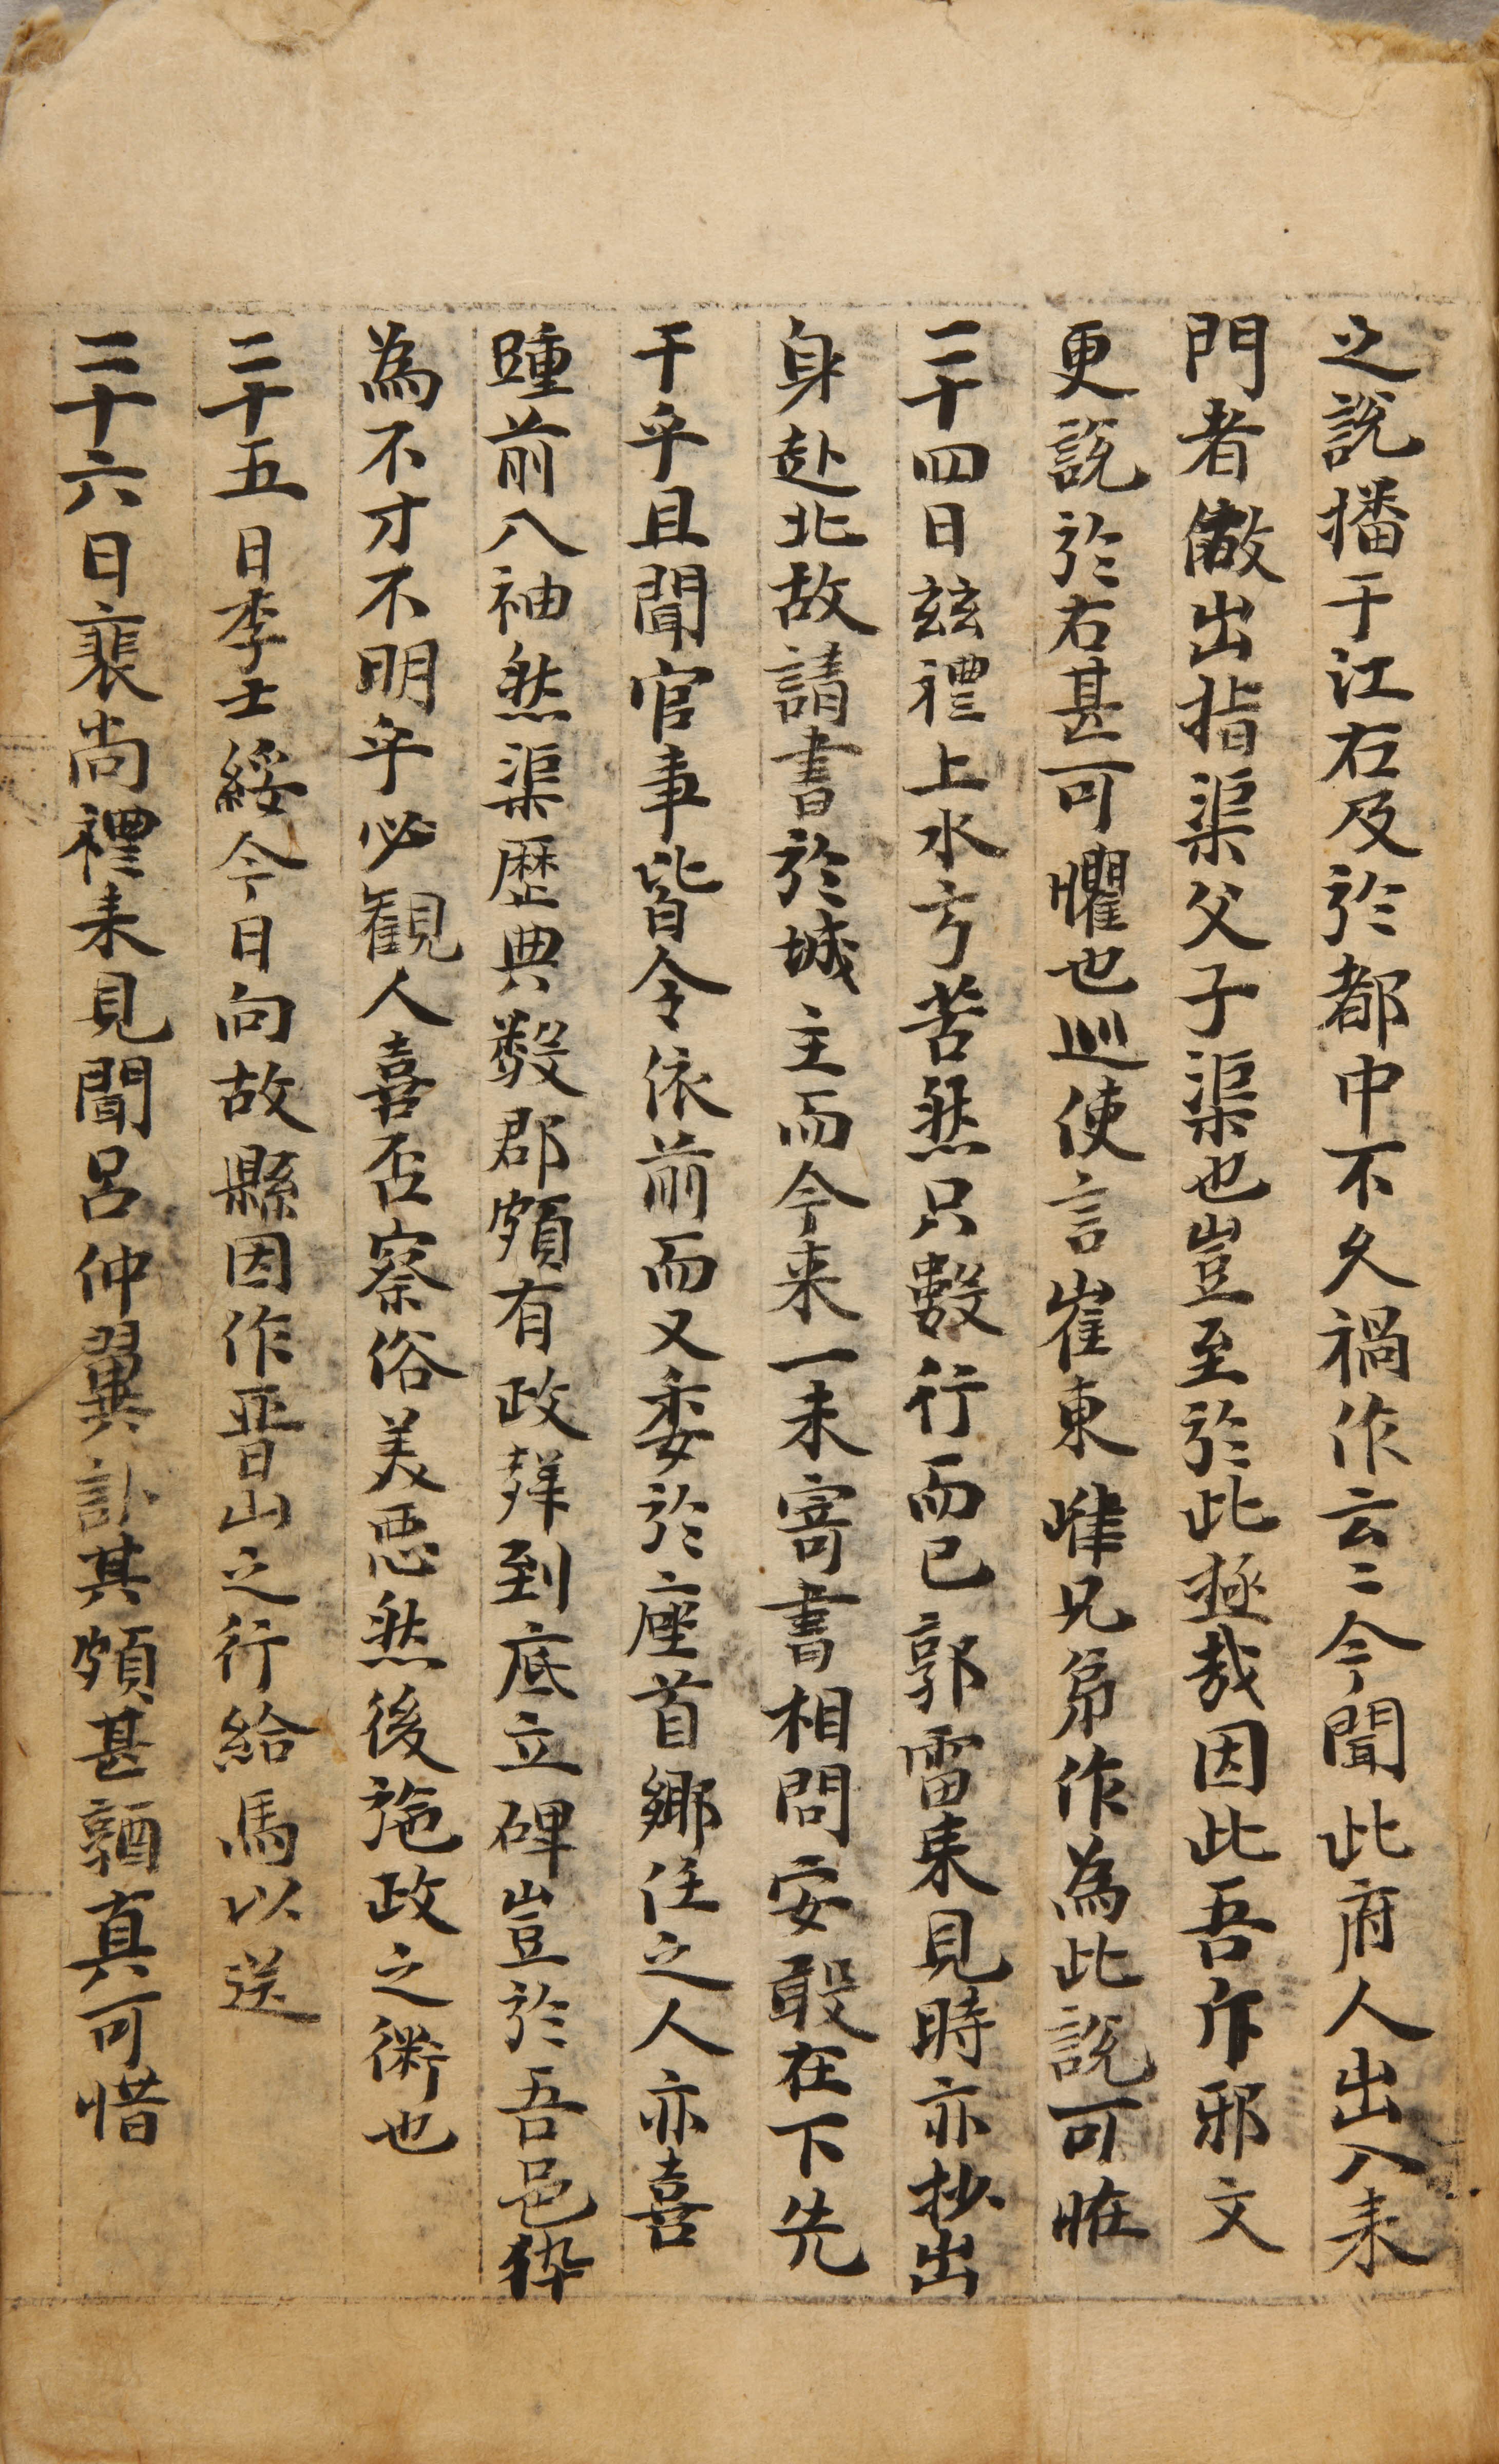 之說播于江右及於都中不久禍作云〻今聞此府人出入来
門者傲出指渠父子渠也豈至於此極哉因此吾斥邪文
更說於右甚可懼也巡使言崔東嵂兄弟作為此說可恠
二十四日玆禮上水亏苦然只數行而已郭雷来見時亦抄出
身赴北故請書於城主而今来一未寄書相問安敢在下先
干乎且聞官事皆令依前而又委於座首鄉任之人亦喜
踵前八袖然渠歷典數郡頗有政聲到底立碑豈於吾邑猝
為不才不明乎必觀人喜否察俗美惡然後施政之術也
二十五日李士綏今日向故縣因作晋山之行給馬以送
二十六日裵尚禮来見聞呂仲翼訃其頗甚韻真可惜